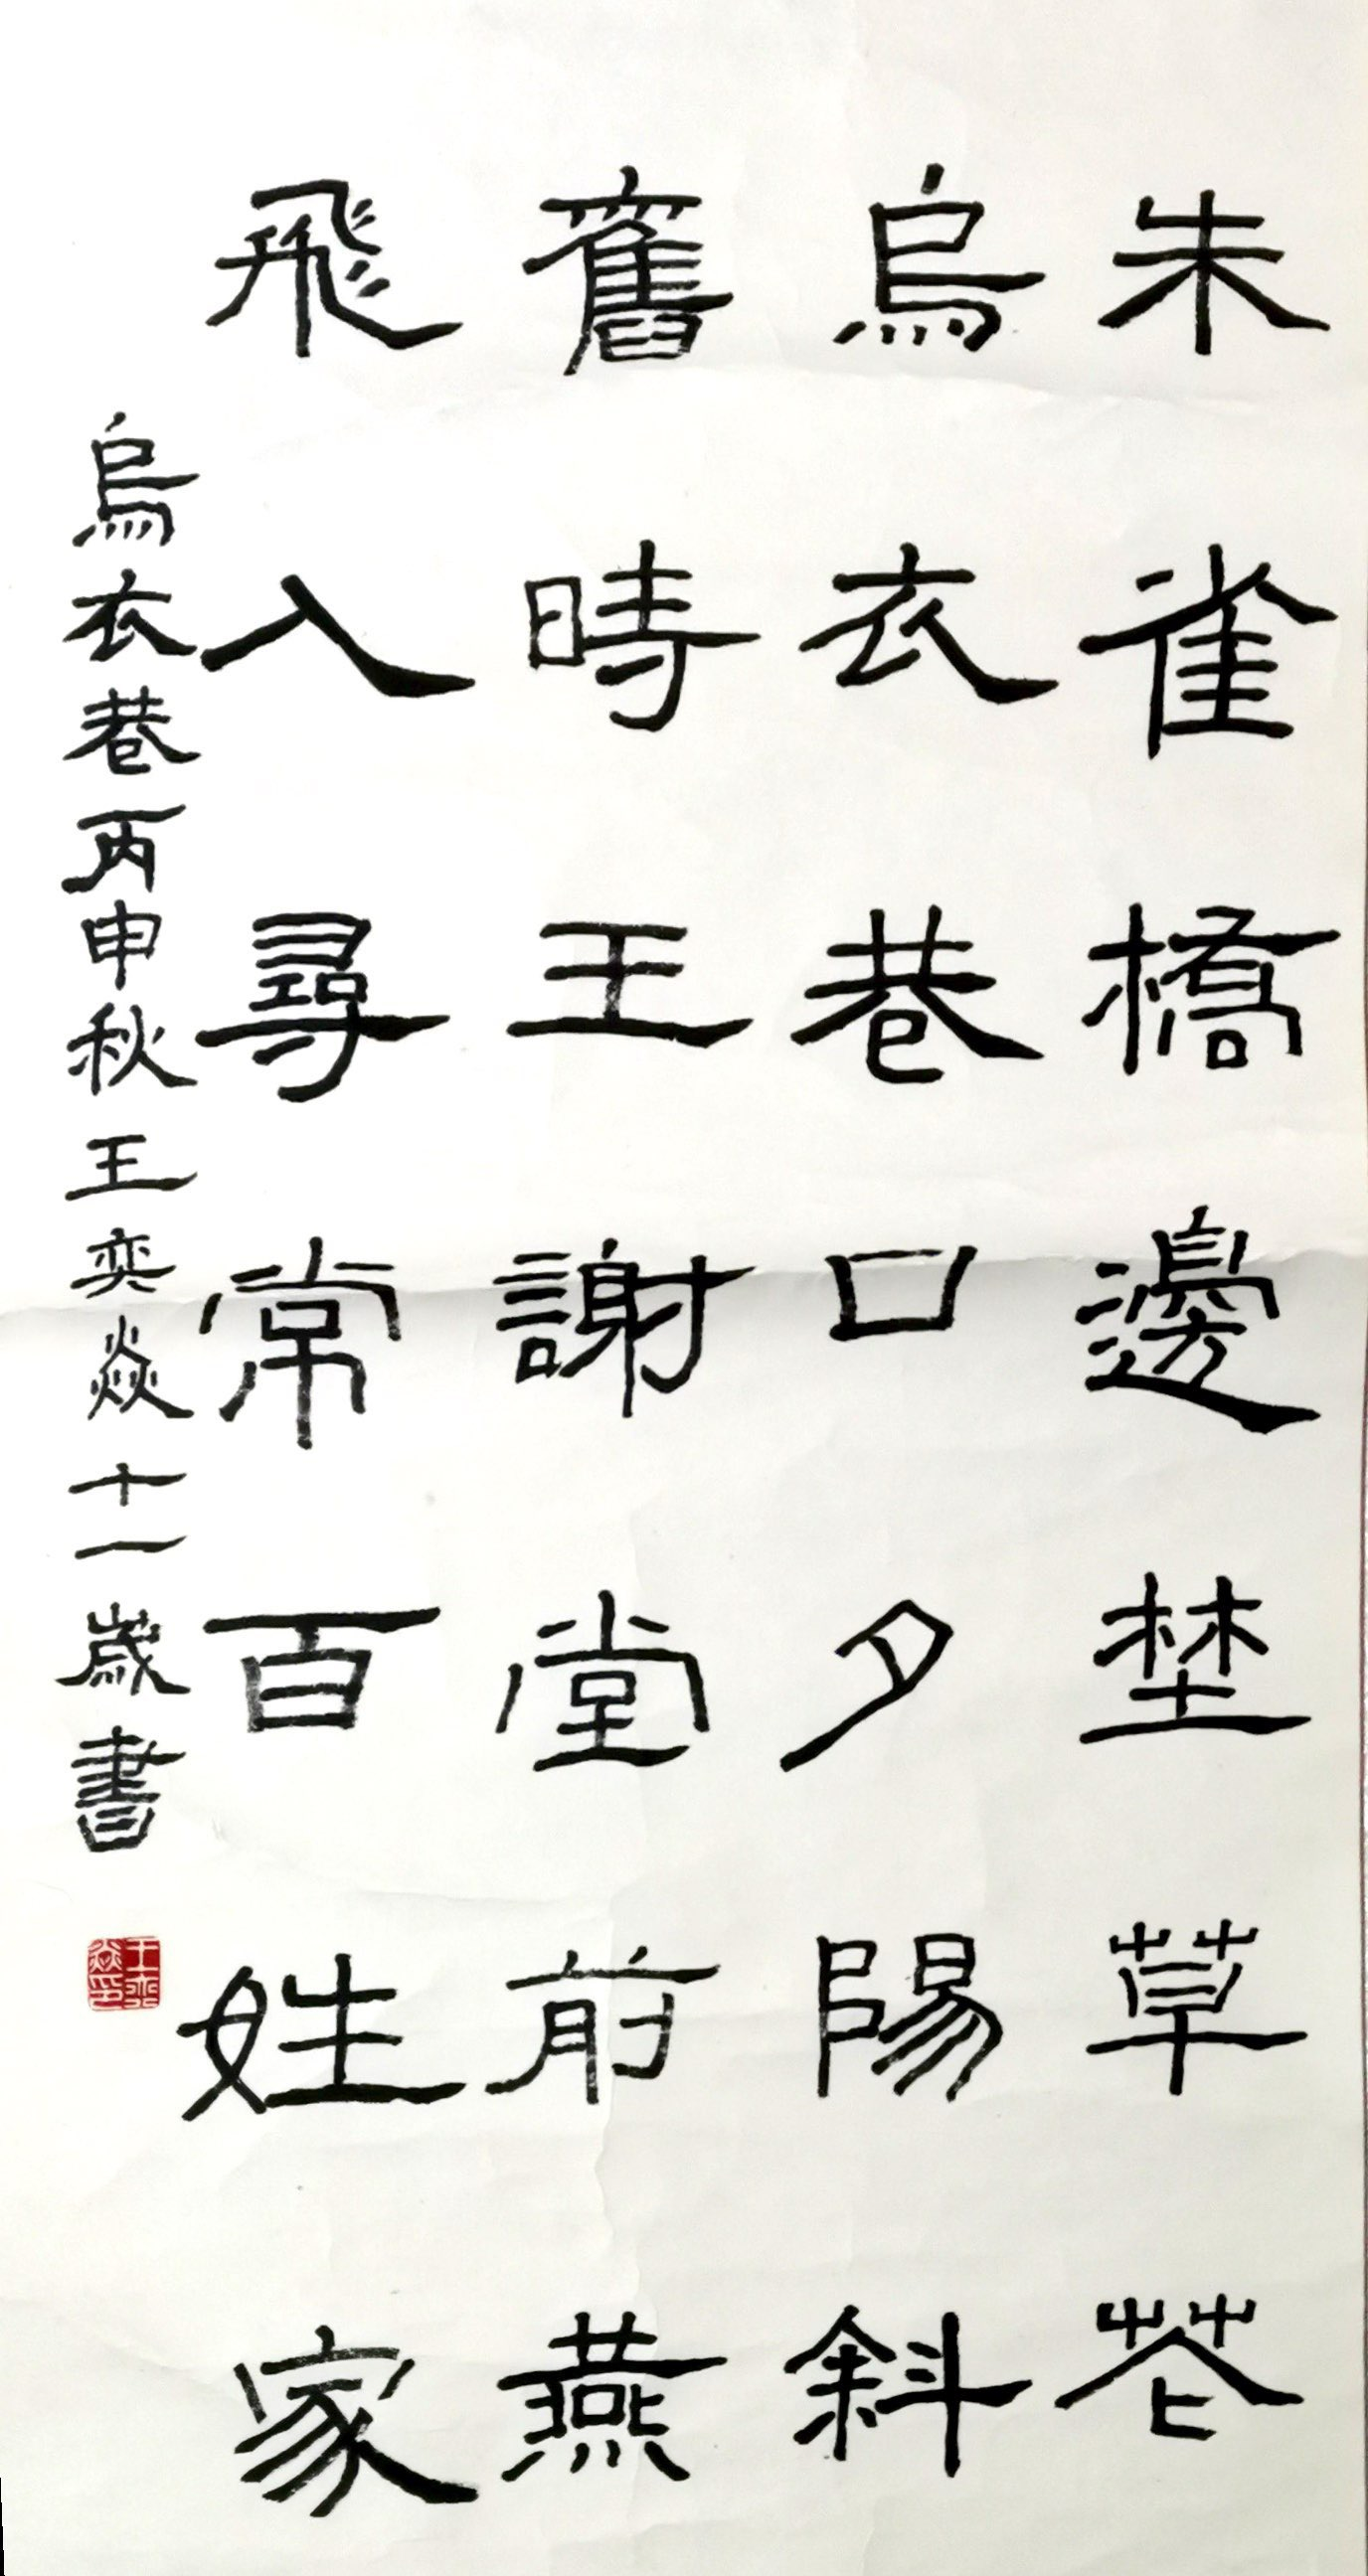 朱雀橋邊埜草苍
烏衣巷口夕陽斜
舊時王謝堂前燕
飛入尋常百姓家
烏衣巷丙申秋王奕焱十一歲書
王奕焱印